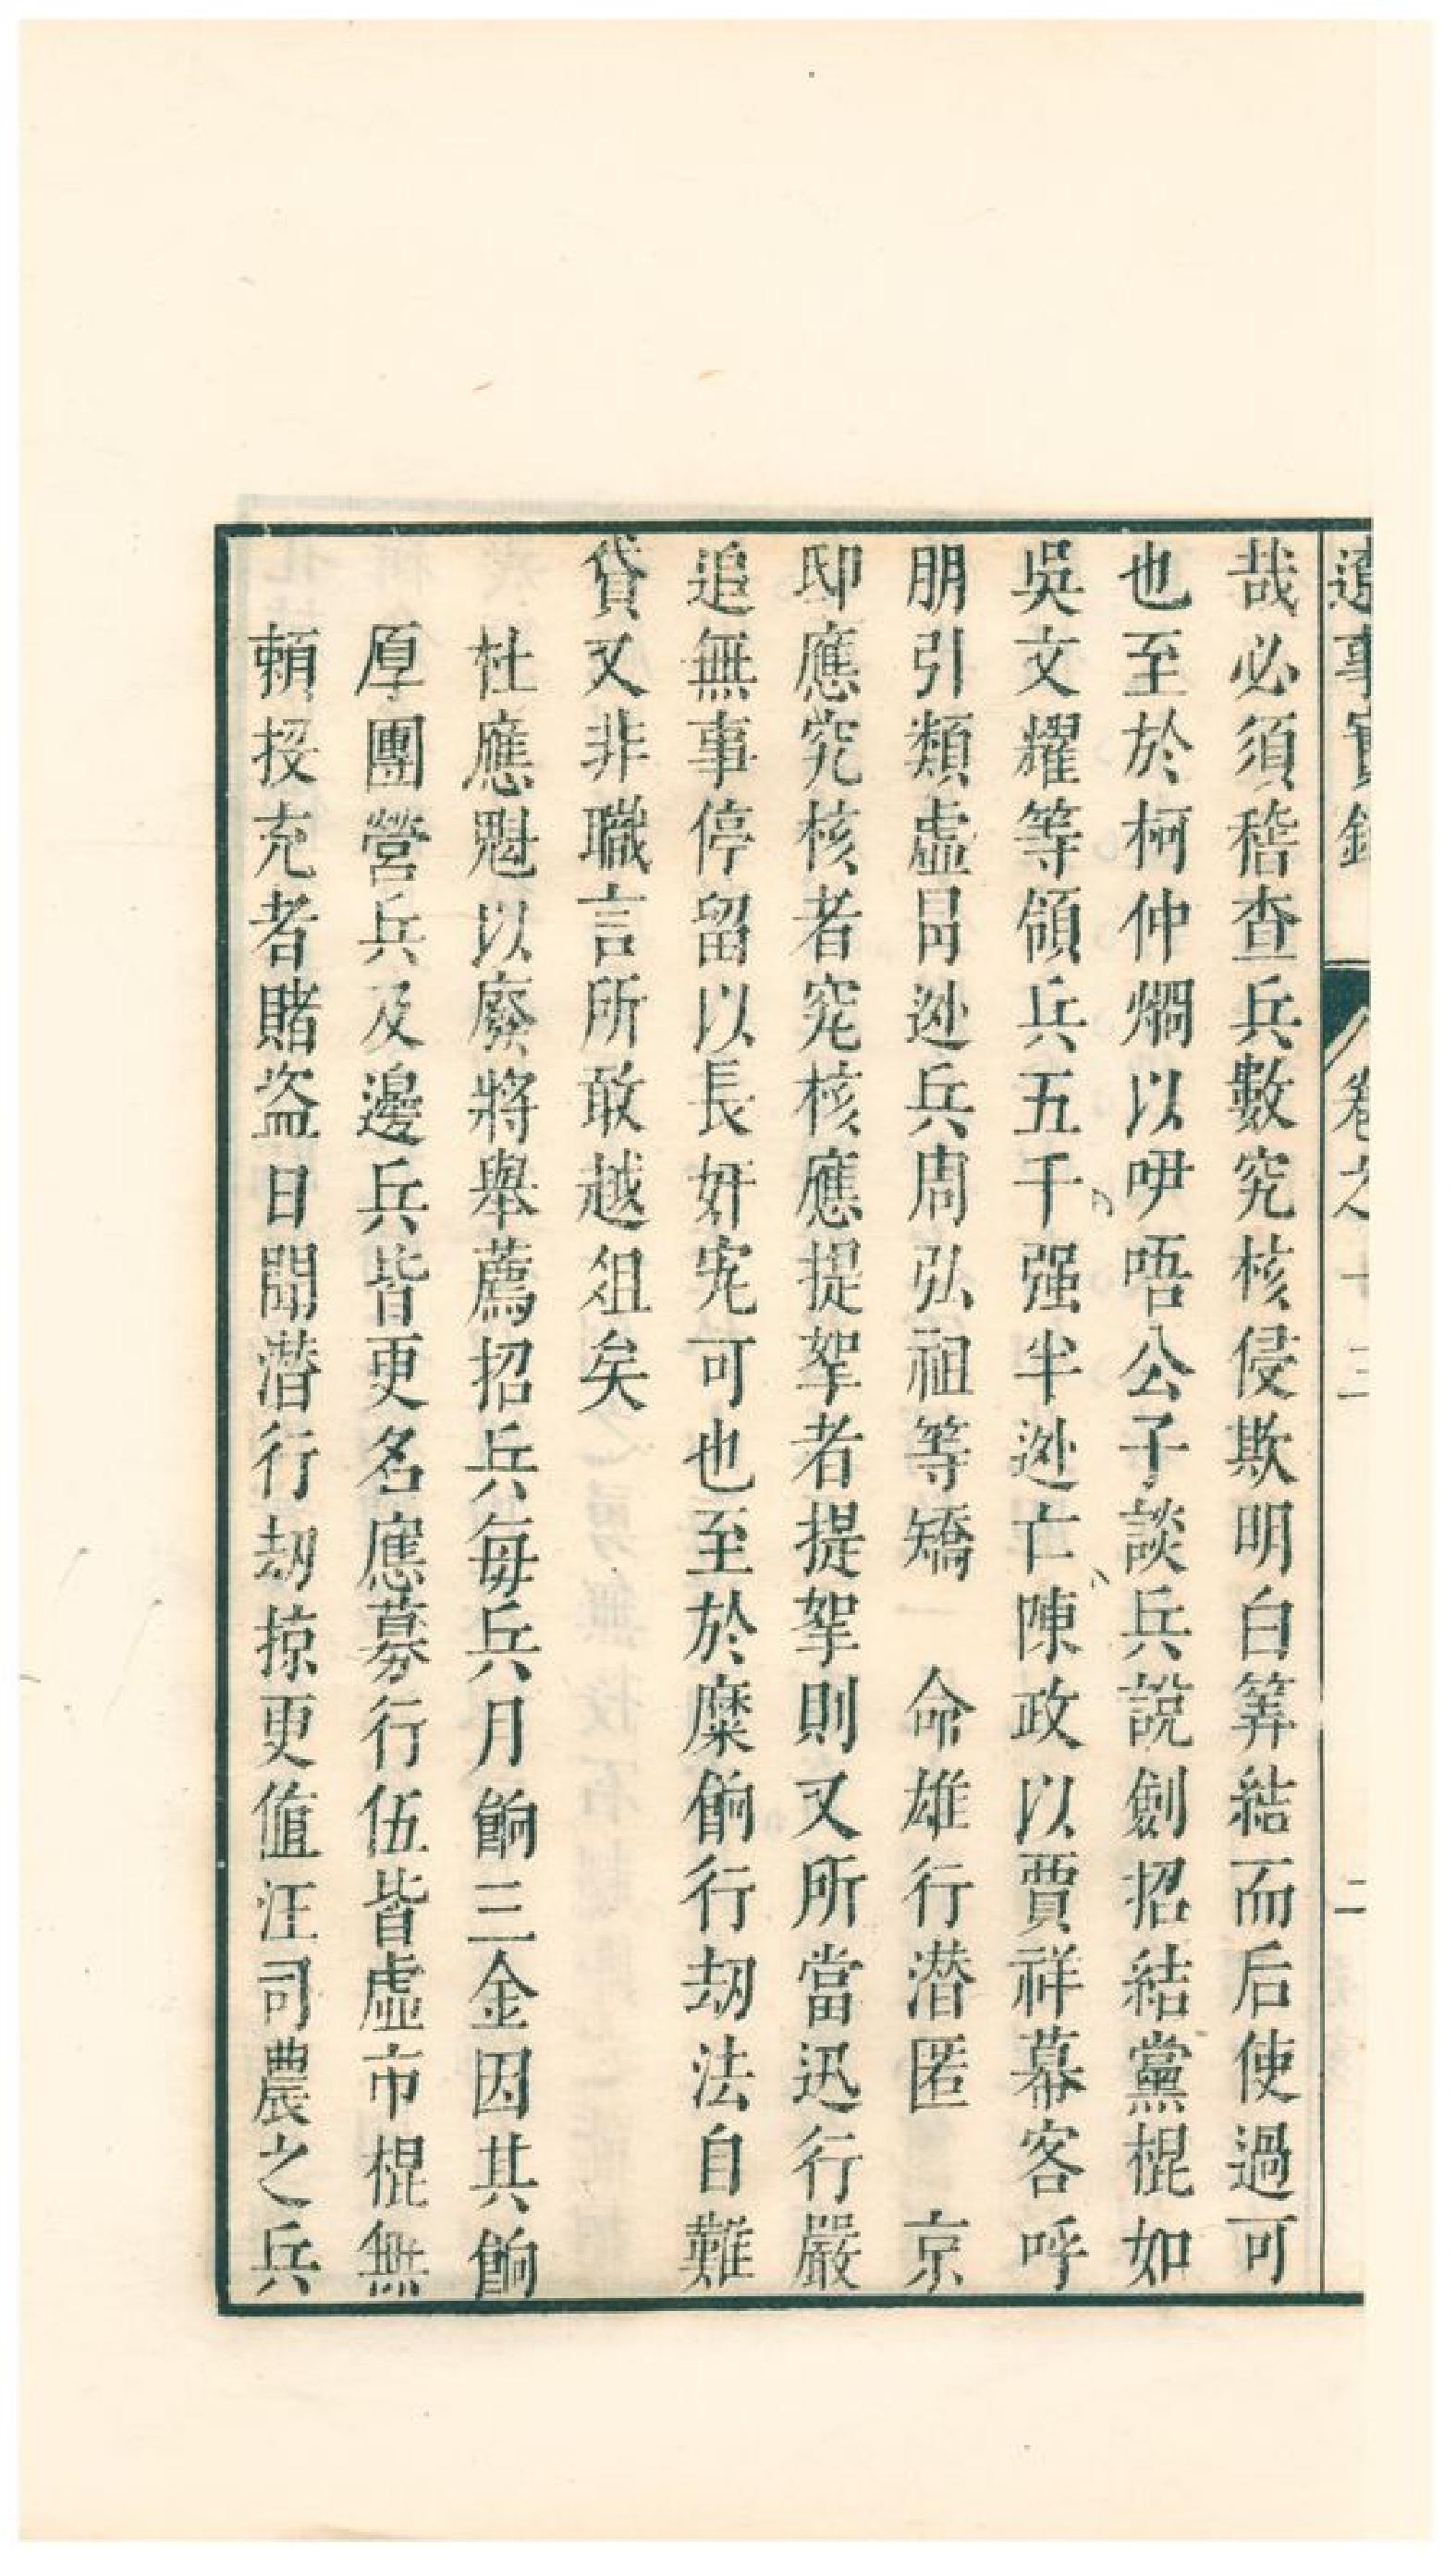 遼事實錄　卷之十三　二
哉必須稽查兵數究核侵欺明白筭結而后使過可
也至於柯仲烱以咿唔公子談兵說劍招結黨棍如
吳文耀等領兵五千强半逃亡陳政以賈祥幕客呼
朋引類虛冐逃兵周弘祖等矯　命雄行潜匿　京
邸應究核者究核應提拏者提拏則又所當迅行嚴
追無事停留以長奸宄可也至於糜餉行劫法自難
貸又非職言所敢越俎矣
杜應魁以廢將舉薦招兵每兵月餉三金因其餉
厚團營兵及邊兵皆更名應募行伍皆虛市棍無
頼投充者賭盗日聞潜行刼掠更值汪司農之兵